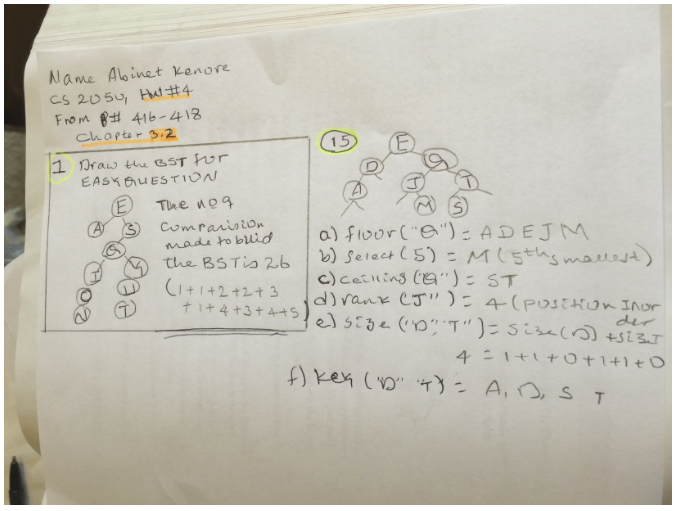 Name Abinet Kenore
CS 2050, HW #4
From P# 416-418
Chapter 3.2
1 Draw the BST for
EASYQUESTION
E
A S
Q
I Y
O U
N T
The no q
Comparision
made to bliid
the BST is 26
(1+1+2+2+3
+1+4+3+4+5)
15
E
D Q
A J T
M S
a) floor("Q") = ADEJM
b) Select(5) = M (5th smallest)
c) ceilling("Q") = ST
d) rank ("J") = 4 (position Inor
der
e) size ("D","T") = Size(D) + size T
4 = 1+1+0+1+1+0
f) key ("D" "T") = A, D, S T